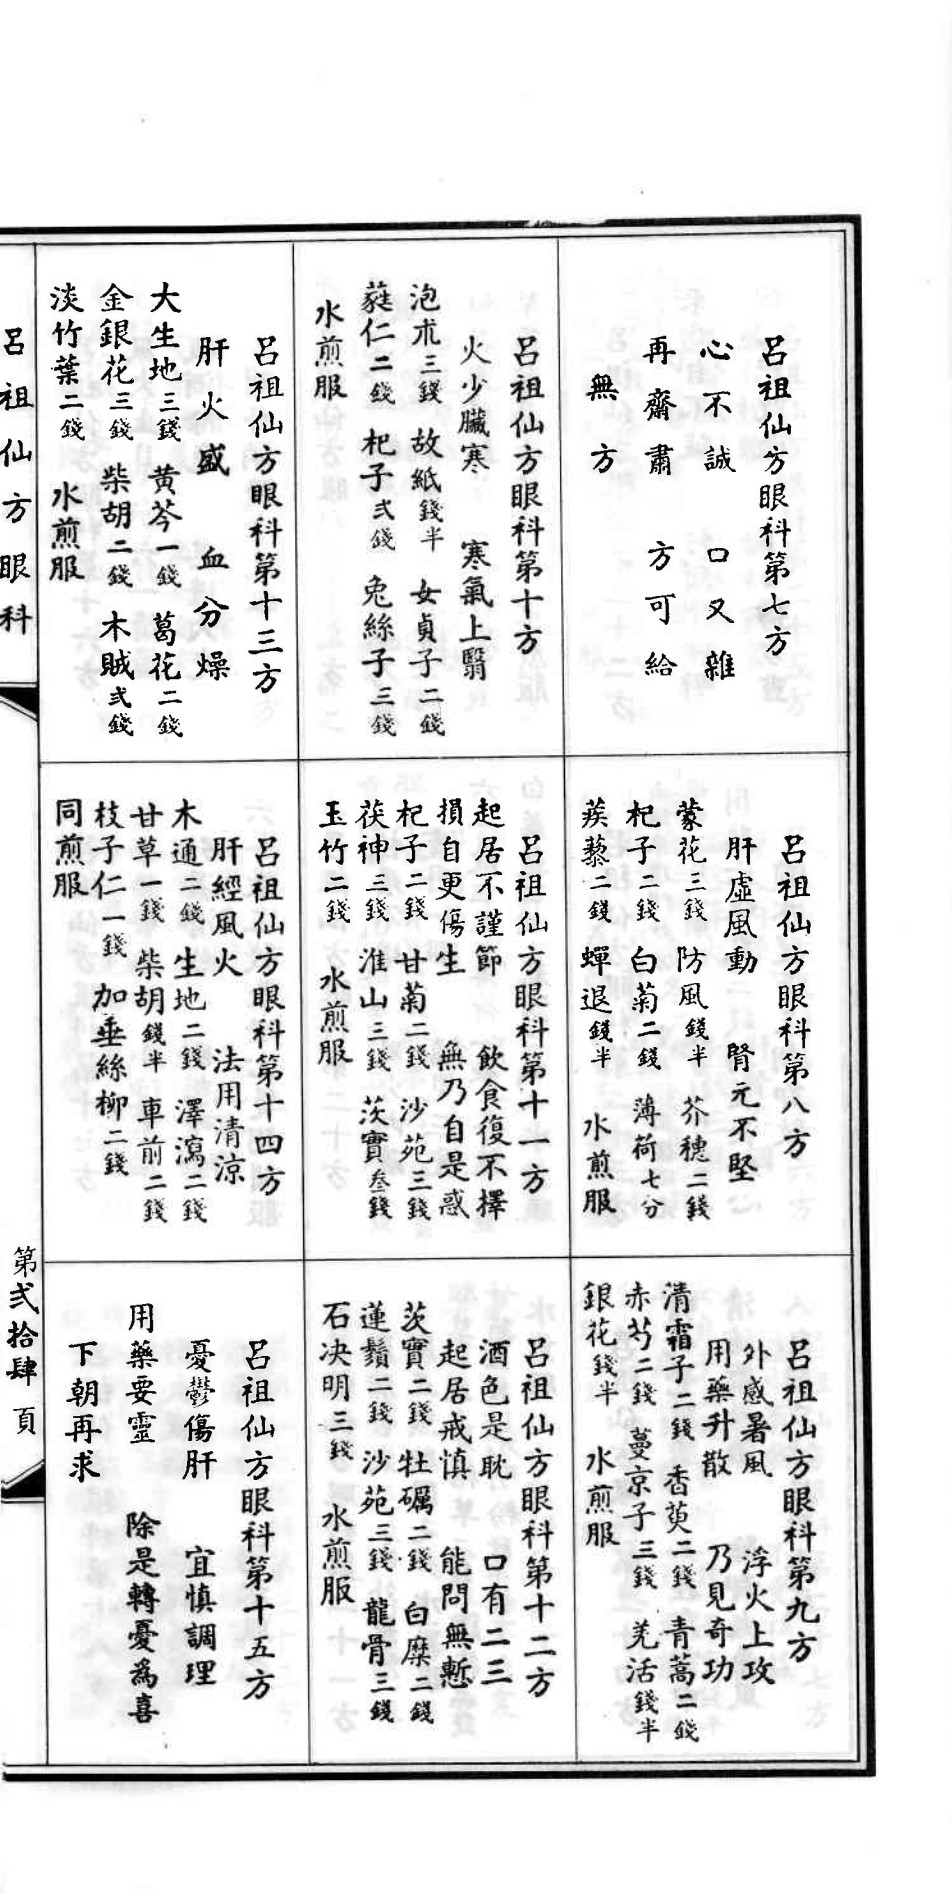 呂祖仙方眼科第七方
心不誠　口又雜
再齋肅　方可給
無方
呂祖仙方眼科第八方
肝虛風動　腎元不堅
蒙花三錢　防風錢半　芥穗二錢
杞子二錢　白菊二錢　薄荷七分
蒺藜二錢　蟬退錢半　水煎服
呂祖仙方眼科第九方
外感暑風　浮火上攻
用藥升散　乃見奇功
清霜子二錢　香萸二錢　青蒿二錢
赤芍二錢　蔓京子三錢　羌活錢半
銀花錢半　水煎服
呂祖仙方眼科第十方
火少臟寒　寒氣上翳
泡朮三錢　故紙錢半　女貞子二錢
蕤仁二錢　杞子弍錢　兔絲子三錢
水煎服
呂祖仙方眼科第十一方
起居不謹節　飲食復不擇
損自更傷生　無乃自是惑
杞子二錢　甘菊二錢　沙苑三錢
茯神三錢　淮山三錢　茨實叁錢
玉竹二錢　水煎服
呂祖仙方眼科第十二方
酒色是耽　口有二三
起居戒慎　能問無慙
茨實二錢　牡礪二錢　白糜二錢
蓮鬚二錢　沙苑三錢　龍骨三錢
石决明三錢　水煎服
呂祖仙方眼科第十三方
肝火盛　血分燥
大生地三錢　黄芩一錢　葛花二錢
金銀花三錢　柴胡二錢　木賊弍錢
淡竹葉二錢　水煎服
呂祖仙方眼科第十四方
肝經風火　法用清凉
木通二錢　生地二錢　澤瀉二錢
甘草一錢　柴胡錢半　車前二錢
枝子仁一錢　加垂絲柳二錢
同煎服
呂祖仙方眼科第十五方
憂鬱傷肝　宜慎調理
用藥要靈　除是轉憂爲喜
下朝再求
呂祖仙方眼科
第弍拾肆頁